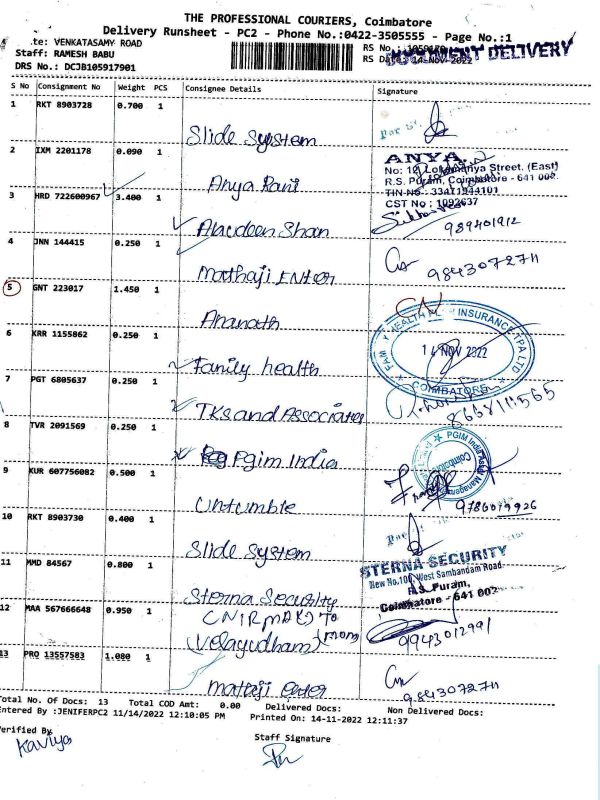 THE PROFESSIONAL COURIERS, Coimbatore
Delivery Runsheet - PC2 - Phone No.:0422-3505555 - Page No.:1
te: VENKATASAMY ROAD
Staff: RAMESH BABU
DRS No.: DCJB105917901
RS No.: 1059179
RS Date: 14-Nov-2022
DELIVERY
S No Consignment No Weight PCS Consignee Details Signature
1 RKT 8903728 0.700 1
Slide System
2 IXM 2201178 0.090 1
ANYA
No: 12, Lokamanya Street. (East)
R.S. Puram, Coimbatore - 641 002.
TIN No : 33471944101
CST No : 1092637
Anya Rani
3 HRD 722600967 3.400 1
Alardeen Shan
989401912
4 JNN 144415 0.250 1
Mathaji Enter
9843072711
5 GNT 223017 1.450 1
Ananath
CN
6 KRR 1155862 0.250 1
FAMILY HEALTH PLAN INSURANCE TPA LTD
14 NOV 2022
COIMBATORE
Family health
7 PGT 6805637 0.250 1
TKS and Associates
8668111565
8 TVR 2091569 0.250 1
Pgim India
PGIM India Asset Management
Coimbatore
9 KUR 607756082 0.500 1
Untumble
9786019926
10 RKT 8903730 0.400 1
Slide System
11 MMD 84567 0.800 1
STERNA SECURITY
New No.100, West Sambandam Road
R.S. Puram,
Coimbatore - 641 002
Sterna Security
12 MAA 567666648 0.950 1
To
Velayudham
9943012991
13 PRO 13557583 1.080 1
Mataji enter
9843072711
Total No. Of Docs: 13 Total COD Amt: 0.00 Delivered Docs: Non Delivered Docs:
Entered By :JENIFERPC2 11/14/2022 12:10:05 PM Printed On: 14-11-2022 12:11:37
Verified By
Staff Signature
Kaviya